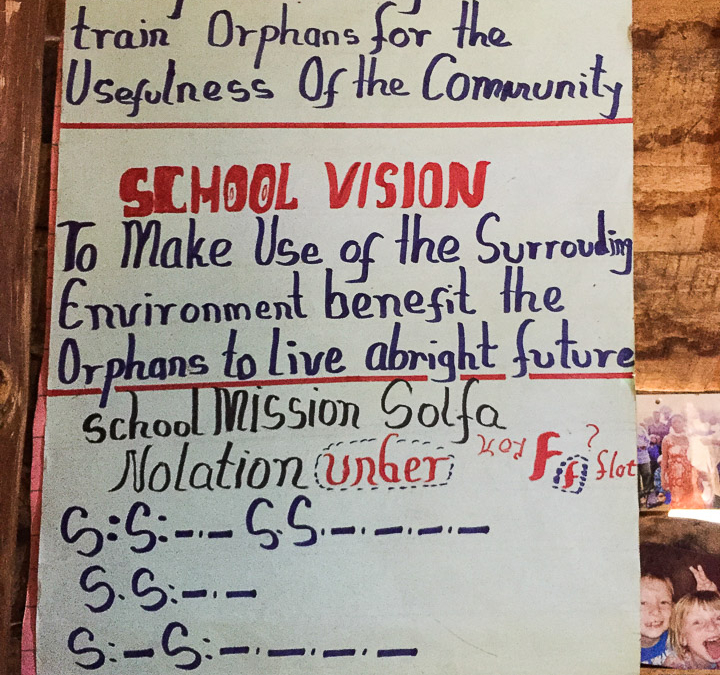 train Orphans for the
Usefulness Of the Community
SCHOOL VISION
To Make Use of the Surrouding
Environment benefit the
Orphans to live abright future
school Mission Solfa
Nolation under key F f ? flat
S:S:-.- S.S.-.-.-.-
S.S:-.-
S:-S:-.-.-.-